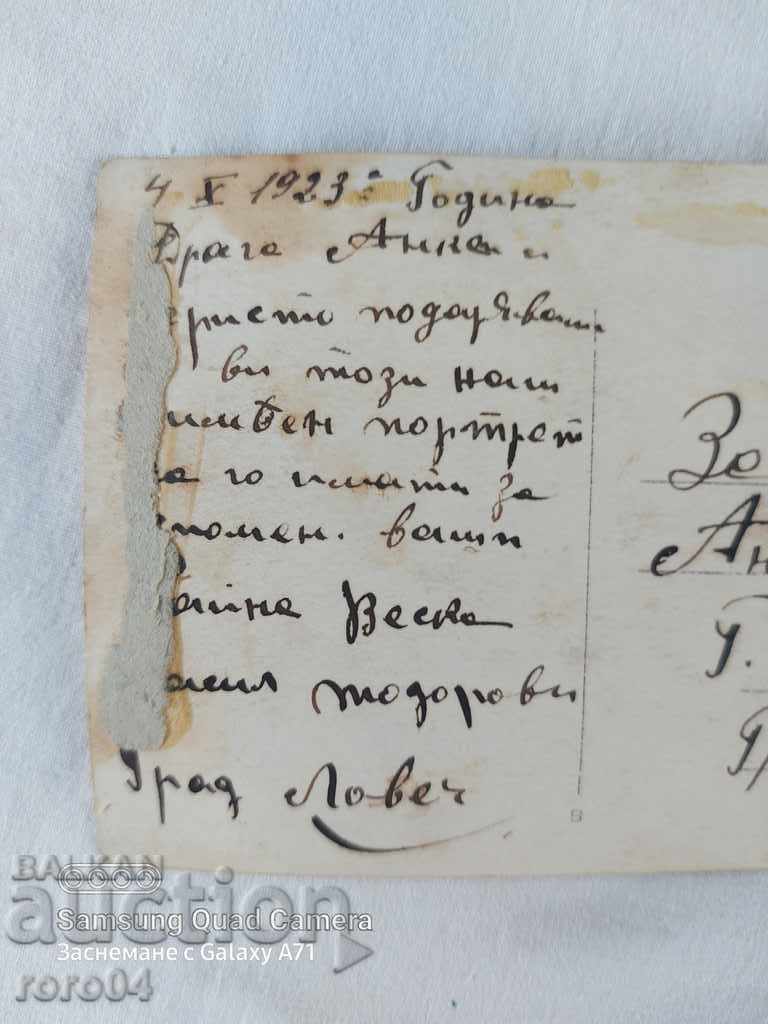 4 X 1923а Година
Драга Анка и
ристо подаряваме
ви този наш
портрет
го имати за
помен. ваши
айна Веска
асил тодорови
Град Ловеч
За
Ан
Г.
8
BALKAN
auction
Samsung Quad Camera
Заснемане с Galaxy A71
roro04